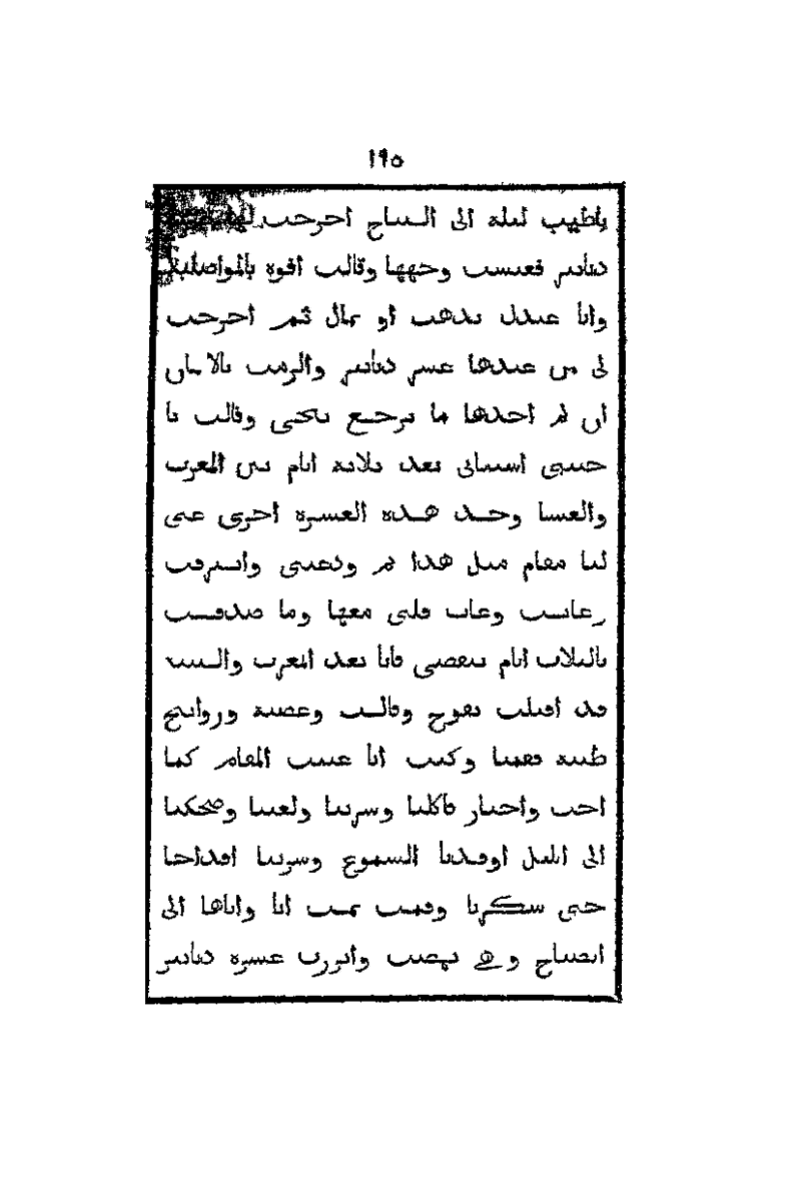 ١٩٥
باطيب ليله الى الصباح اخرجت لها
دنانير فعبست وجهها وقالت افوه بالمواصليه
وانا عندك بذهب او بمال ثم اخرجت
لى من عندها عشر دنانير والزمت بالايمان
ان لم اخذها ما ترجع تجى وقالت يا
حبيبى استنانى بعد ثلاثة ايام بين المغرب
والعشا وخذ هذه العشرة اخرى عبى
لنا مقام مثل هذا ثم ودعتنى وانصرفت
وغابت وغاب قلبى معها وما صدقت
بالثلاث ايام تنقضى فانا بعد المغرب والست
قد اقبلت تفوح وقالب وعصبه وروايح
طيبه فقمنا وكنت انا عبيت المقام كما
احب واختار فاكلنا وشربنا ولعبنا وضحكنا
الى الليل اوقدنا الشموع وشربنا اقداحا
حتى سكرنا وقمت نمت انا واياها الى
الصباح وهى نهضت وابرزت عشرة دنانير